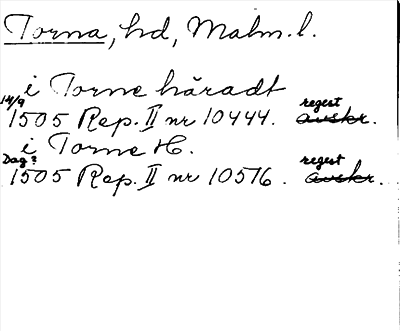 Torna, hd, Malm. l.
i Torne häradt
14/9 regest
1505 Rep. II nr 10444. avskr.
i Torne H.
Dag? regest
1505 Rep. II nr 10576. avskr.